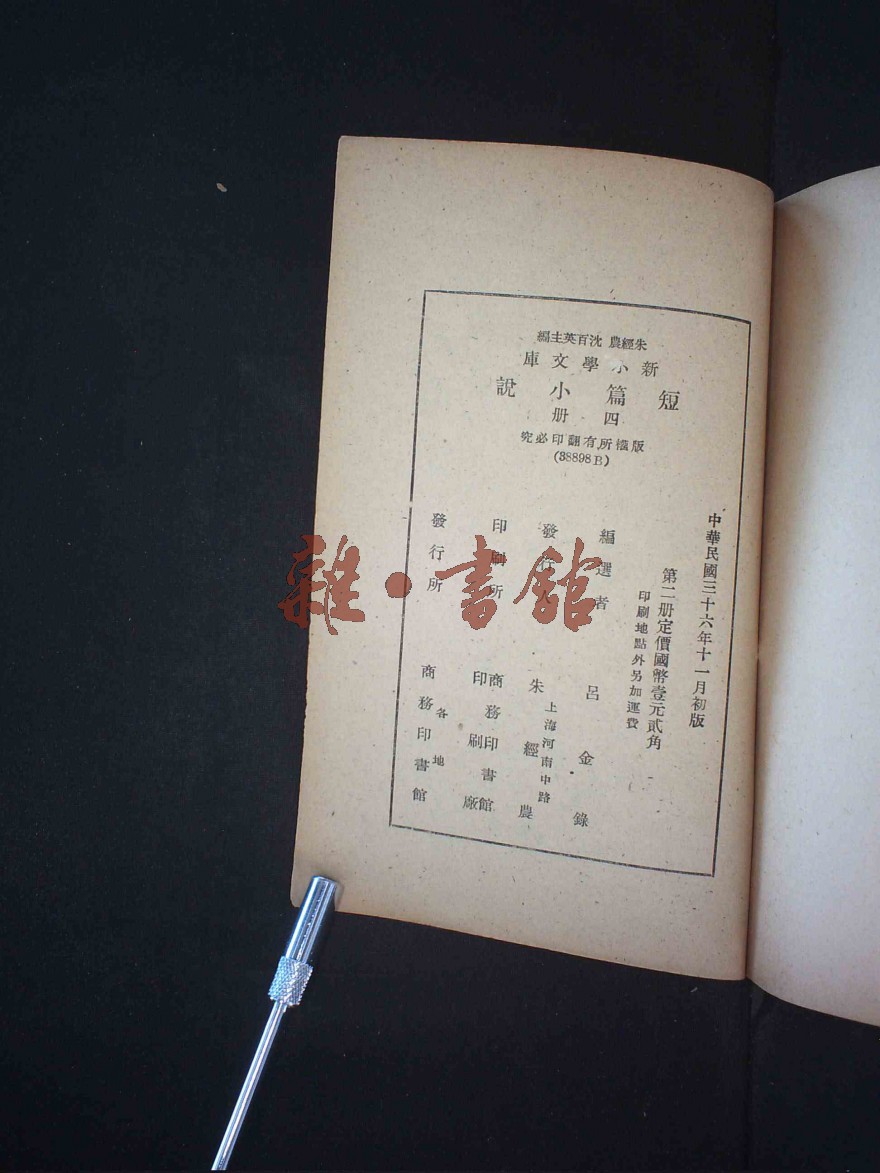 朱經農 沈百英主編
新小學文庫
短篇小說
四册
版權所有翻印必究
(38898B)
中華民國三十六年十一月初版
第二册定價國幣壹元貳角
印刷地點外另加運費
編選者 呂金錄
發行人 朱經農
上海河南中路
印刷所 商務印書館
印刷廠
發行所 商務印書館
各地
雜·書館